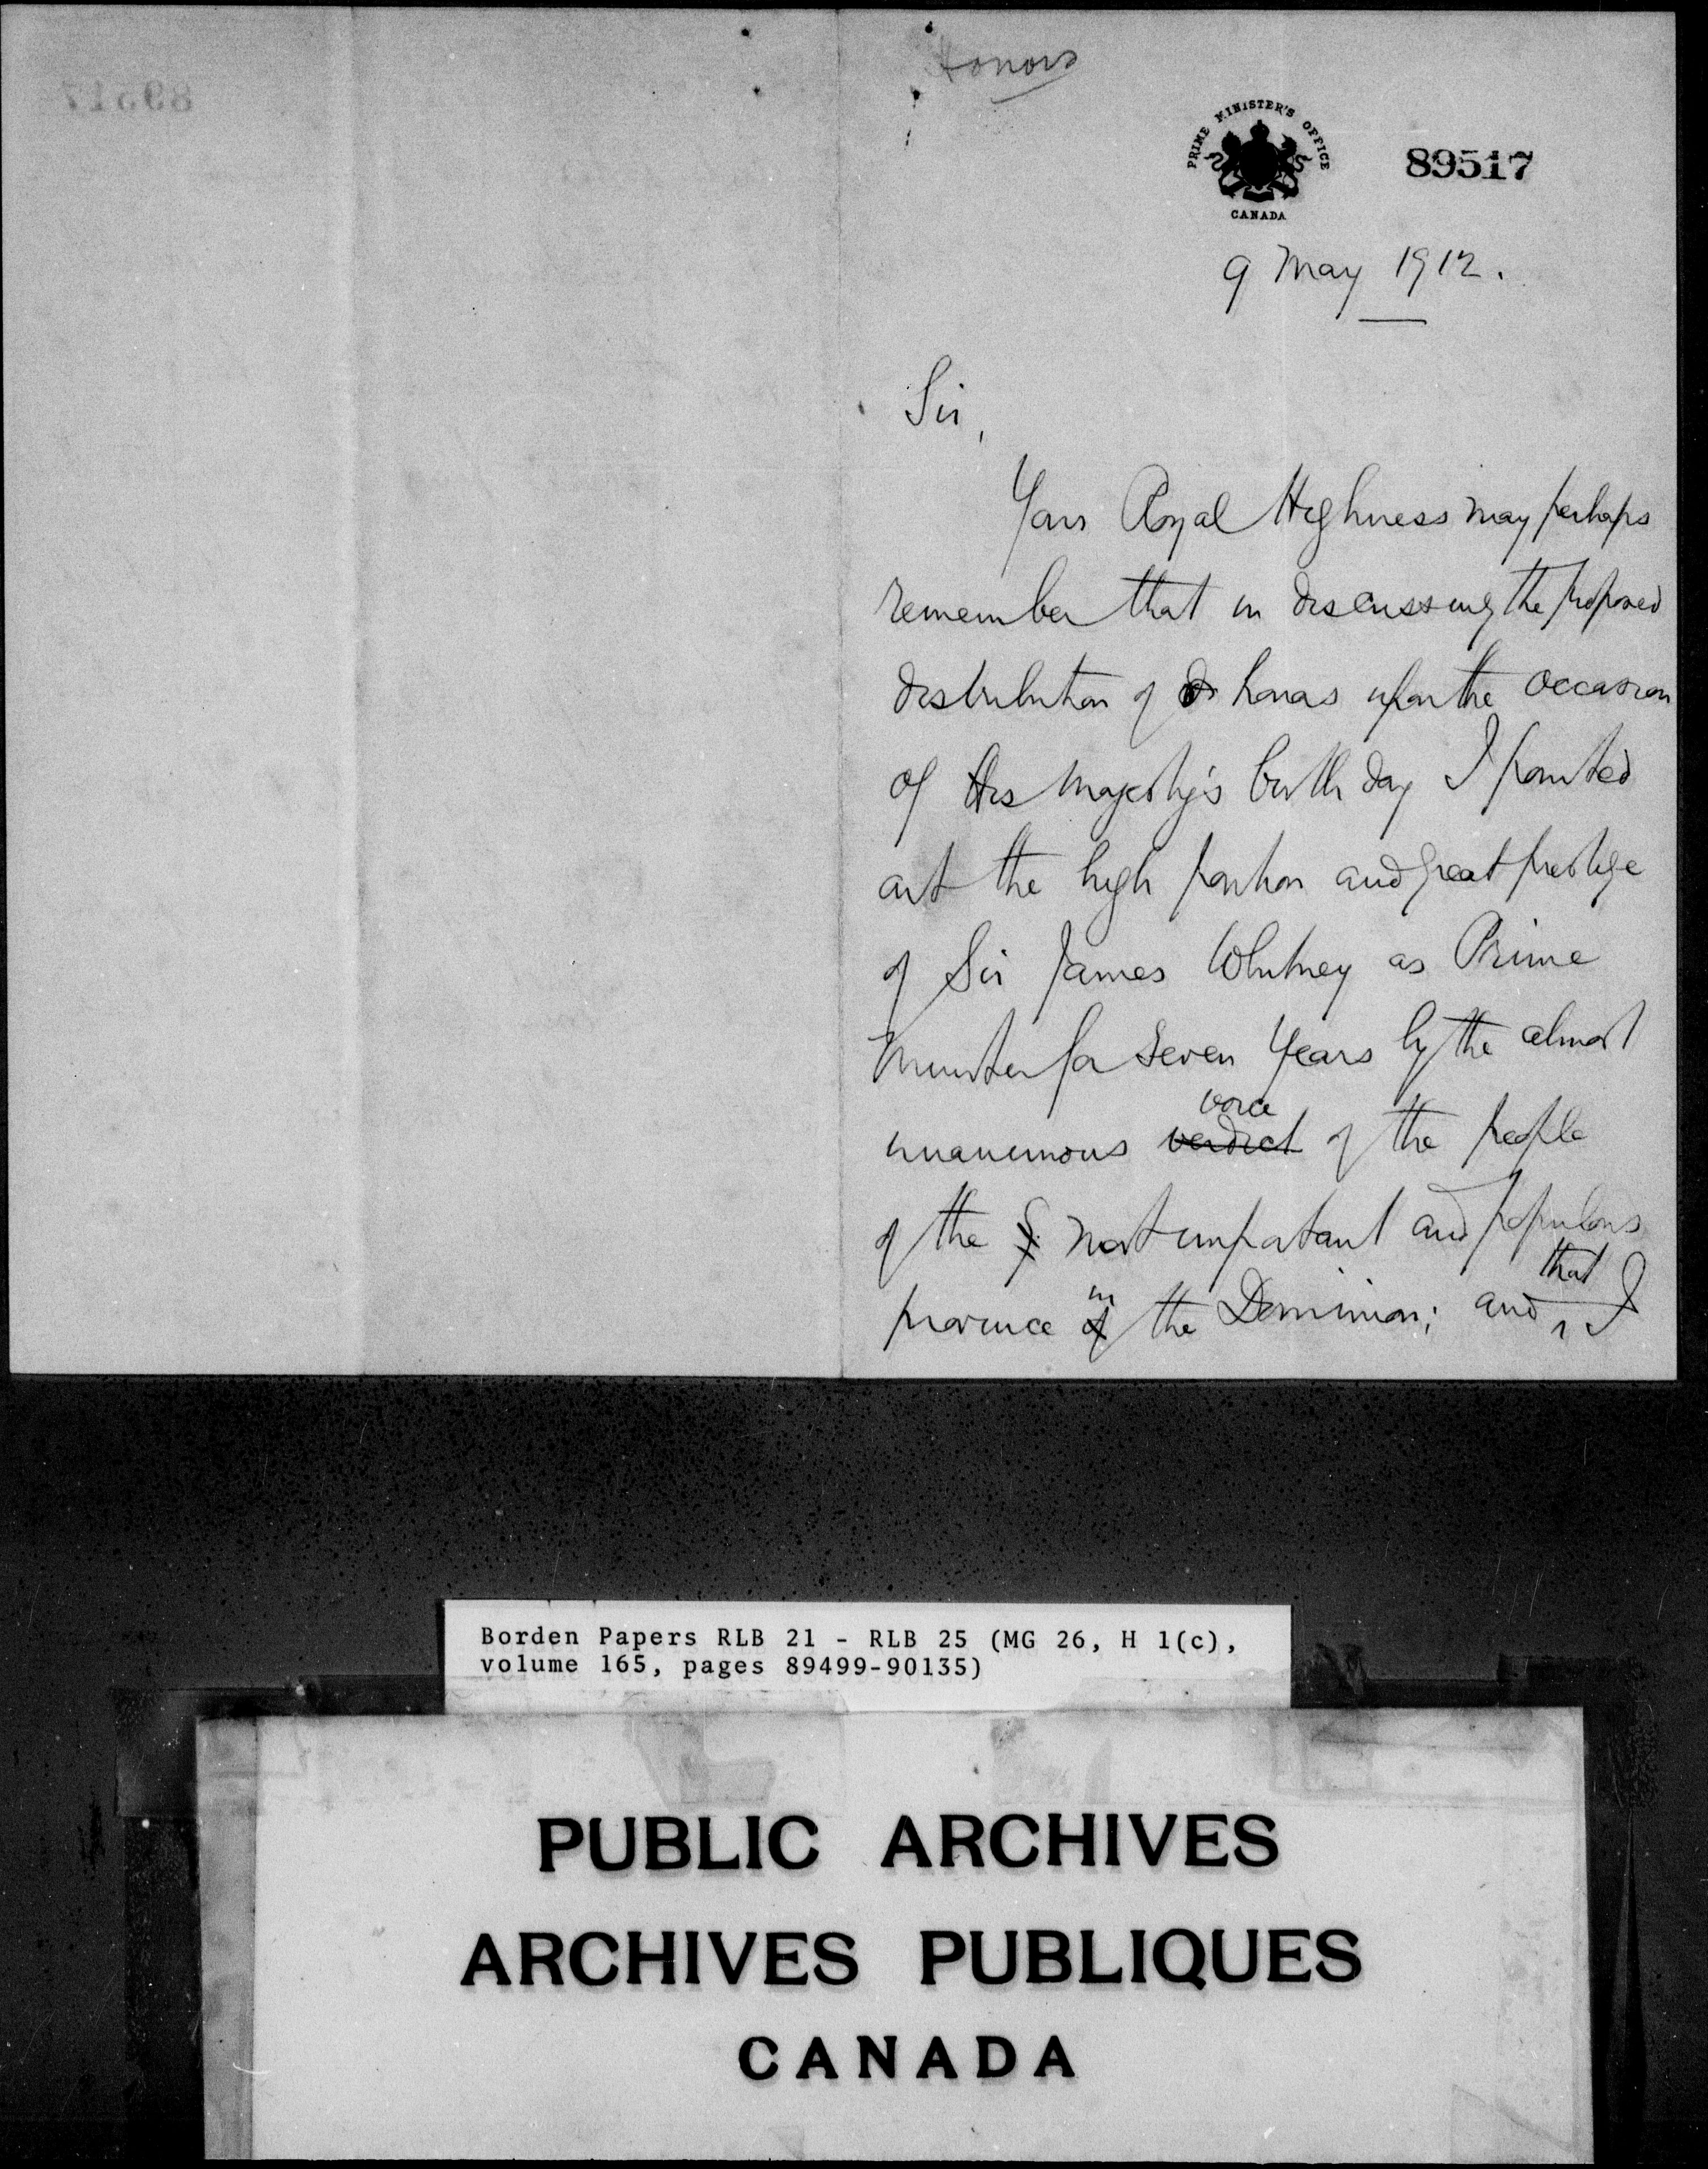 Honors
PRIME MINISTER'S OFFICE
CANADA
89517
9 May 1912.
Sir,
Your Royal Highness may perhaps
remember that in discussing the proposed
distribution of honors upon the occasion
of His Majesty's birth day I pointed
out the high position and great prestige
of Sir James Whitney as Prime
Minister for seven years by the almost
voice
unanimous verdict of the people
of the most important and populous
that
in
province of the Dominion; and I
Borden Papers RLB 21 - RLB 25 (MG 26, H 1(c),
volume 165, pages 89499-90135)
PUBLIC ARCHIVES
ARCHIVES PUBLIQUES
CANADA